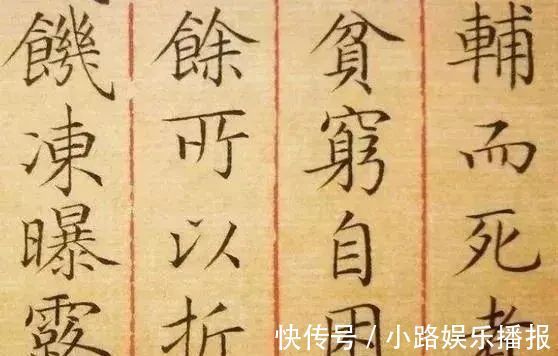 輔而死
貧窮自
餘所以折
饑凍曝露
快传号 / 小路娱乐播报